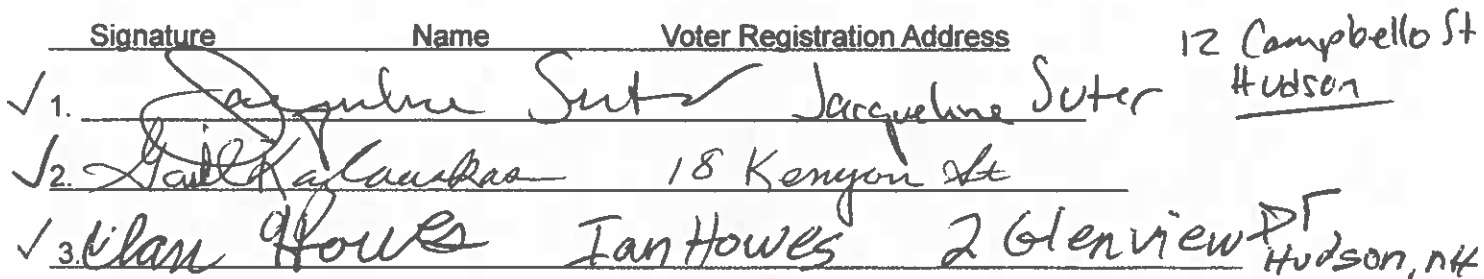 Signature Name Voter Registration Address
✓ 1. Jacqueline Suter Jacqueline Suter 12 Campbello St
Hudson
✓ 2. Gail 18 Kenyon St
✓ 3. Ian Howes Ian Howes 2 Glenview Dr
Hudson, NH